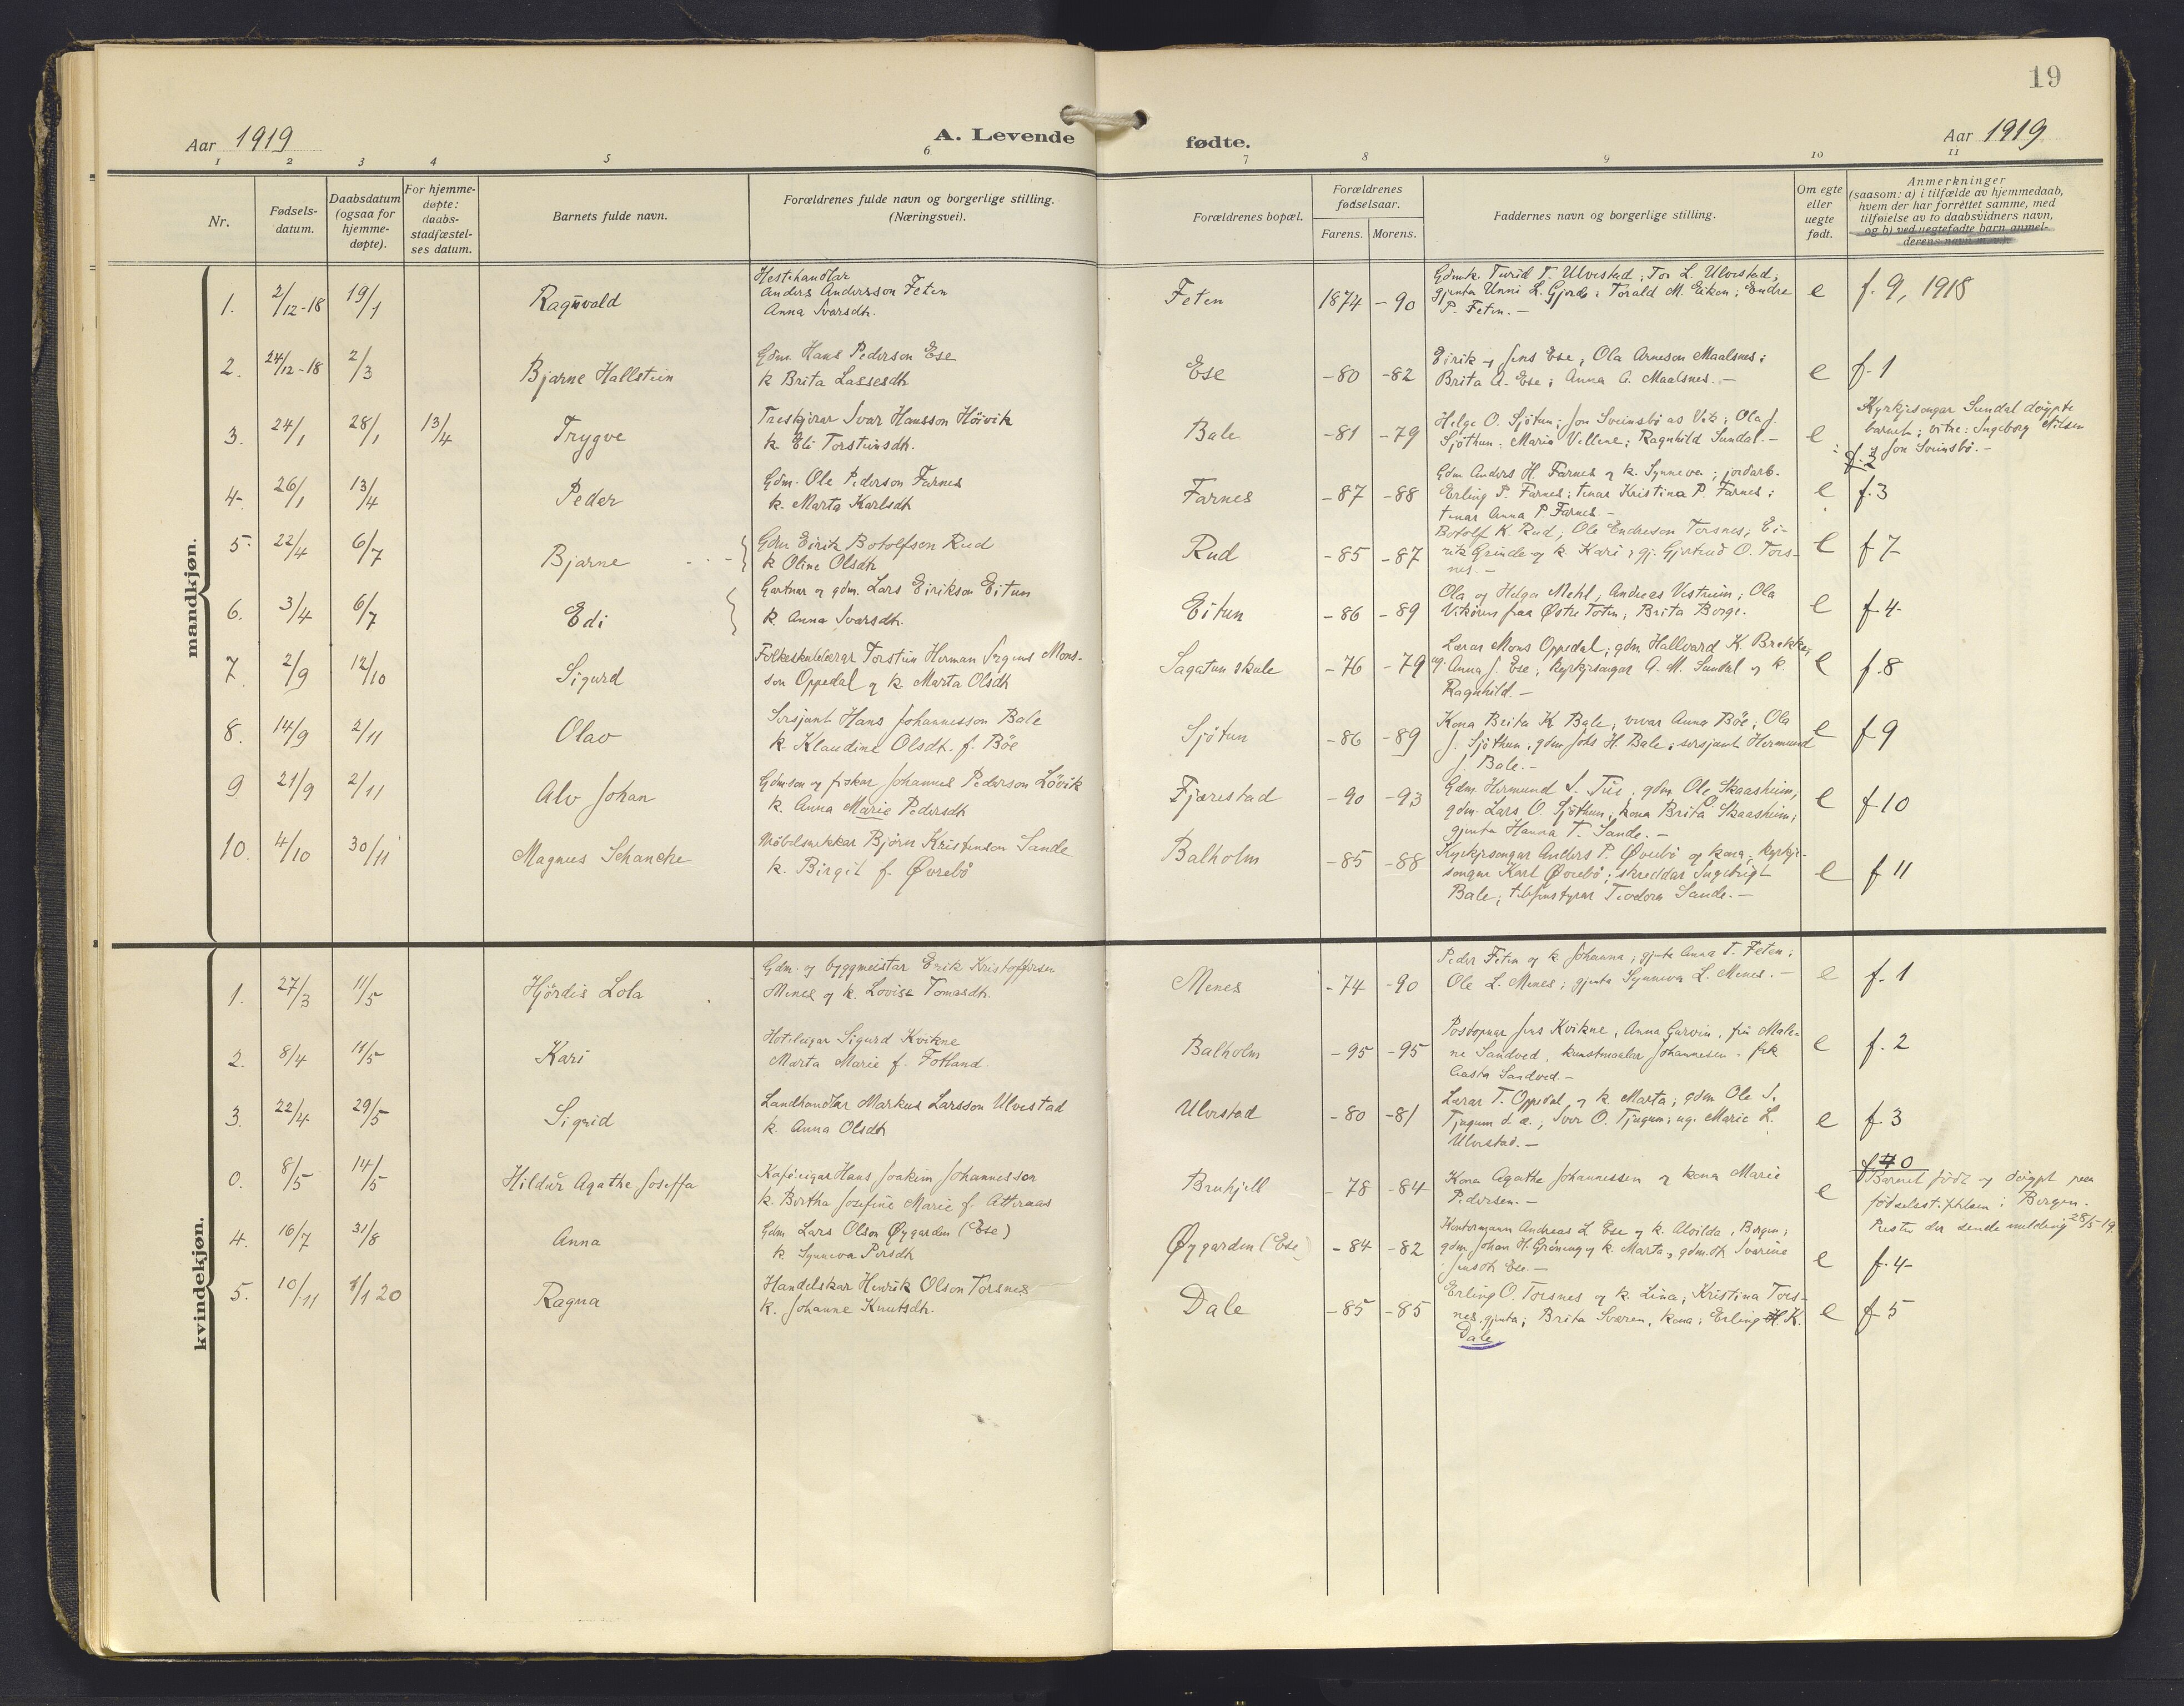 19
Aar 1919
A. Levende fødte.
Aar 1919
1 2 3 4 5 6 7 8 9 10 11
Nr.
Fødsels-
datum.
Daabsdatum
(ogsaa for
hjemme-
døpte).
For hjemme-
døpte:
daabs-
stadfæstel-
ses datum.
Barnets fulde navn.
Forældrenes fulde navn og borgerlige stilling.
(Næringsvei).
Forældrenes bopæl.
Forældrenes
fødselsaar.
Farens. Morens.
Faddernes navn og borgerlige stilling.
Om egte
eller
uegte
født.
Anmerkninger
(saasom: a) i tilfælde av hjemmedaab,
hvem der har forrettet samme, med
tilføielse av to daabsvidners navn,
og b) ved uegtefødte barn anmel-
derens navn m. v.).
mandkjøn.
1. 2/12-18 19/1 Ragnvald
Hestehandlar
Anders Andersson Feten
Anna Ivarsdh.
Feten 1874 -90
Gdmk. Turid T. Ulvestad; Tor L. Ulvestad;
gjenta Unni L. Gjerde; Torald M. Eiken; Endre
P. Feten. –
e f. 9, 1918
2. 24/12-18 2/3 Bjarne Hallstein
Gdm. Hans Pederson Ese
k Brita Lassesdh
Ese -80 -82
Eirik og Jens Ese, Ola Arneson Maalsnes;
Brita A. Ese; Anna A. Maalsnes. –
e f. 1
3. 24/1 28/1 13/4 Trygve
Treskjerar Ivar Hansson Höivik
k. Eli Torsteinsdh.
Bale -81 -79
Helge O. Sjötun; Jon Sveinsbö av Vik; Ola J.
Sjöthun; Marie Villene; Ragnhild Sundal. –
e
Kyrkjesongar Sundal döypte
barnet; vitne: Ingeborg Nilsen
og Jon Sveinsbö. –
f. 2
4. 26/1 13/4 Peder
Gdm. Ole Pederson Farnes
k. Marta Karlsdh
Farnes -87 -88
Gdm Anders H. Farnes og k. Synneva; jordarb.
Erling P. Farnes; tenar Kristina P. Farnes;
tenar Anna P Farnes. –
e f. 3
5. 22/4 6/7 Bjarne
Gdm Eirik Botolfson Rud
k Oline Olsdh
Rud -85 -87
Botolf K. Rud; Ole Endreson Torsnes; Ei-
rik Grinde og k. Kari; gj. Gjertrud O. Tors-
nes. –
e f 7
6. 3/4 6/7 Edi
Gartnar og gdm. Lars Eirikson Eitun
k. Anna Ivarsdh.
Eitun -86 -89
Ola og Helga Mehl, Andreas Vestreim; Ola
Vikören fraa Østre Toten, Brita Borge.
e f 4
7. 2/9 12/10 Sigurd
Folkeskulelærar Torstein Herman Mons-
son Oppedal og k. Marta Olsdh
Sagatun skule -76 -79
Lærar Mons Oppedal; gdm. Hallvard K. Brekke;
ug. Anna J. Ese; kyrkjesongar A. M. Sundal og k.
Ragnhild. –
e f. 8
8. 14/9 2/11 Olav
Sersjant Hans Johannesson Bale
k. Klaudine Olsdh. f. Böe
Sjötun -86 -89
Kona Brita K Bale, Anna Böe; Ola
J. Sjöthun; gdm. Johs H. Bale; sersjant Hermund
J. Bale. –
e f 9
9 21/9 2/11 Alv Johan
Gdmson og fiskar Johannes Pederson Lövik
k. Anna Marie Pedersdh
Fjærestad -90 -93
Gdm. Hermund S. Tue, gdm. Ole Skaasheim,
gdm. Lars O. Sjöthun, kona Brita O. Skaasheim;
gjenta Hanna T. Sande. –
e f 10
10. 4/10 30/11 Magnus Schancke
Möbelsnekkar Björn Kristenson Sande
k. Birgit f. Øvrebö
Balholm -85 -88
Kyrkjesongar Anders P. Øvrebö og kona; kyrkje-
songar Karl Øvrebö; skreddar Ingebrigt
Bale; telefonstyrar Teodora Sande. –
e f 11
kvindekjøn.
1. 27/3 11/5 Hjördis Lola
Gdm. og byggmeistar Eirik Kristoffersen
Menes og k. Lovise Tomasdh.
Menes -74 -90
Peder Feten og k Johanna; gjenta Anna T. Feten;
Ole L. Menes; gjenta Synneva L. Menes. –
e f. 1
2. 8/4 11/5 Kari
Hoteleigar Sigurd Kvikne
Marta Marie f. Fotland.
Balholm -95 -95
Postopnar Jens Kvikne, Anna Garvin, frú Male-
ne Sandved, kunstmaalar Johannesen, frk
Aasta Sandved –
e f. 2
3. 22/4 29/5 Sigrid
Landhandlar Markus Larsson Ulvestad
k. Anna Olsdh
Ulvestad -80 -81
Lærar T. Oppedal og k. Marta; gdm Ole I.
Tjugum d. æ.; Iver O. Tjugum; ug. Marie L.
Ulvestad. –
e f. 3
0. 8/5 14/5 Hildur Agathe Joseffa
Kaféeigar Hans Joakim Johannesson
k. Bertha Josefine Marie f. Atteraas
Bruhjell -78 -84
Kona Agathe Johannessen og kona Marie
Pedersen. –
e
f. 0
Barnet födt og döypt paa
födselsst.ftelsen i Bergen.
Presten der sende melding 28/5-19.
4. 16/7 31/8 Anna
Gdm. Lars Olson Øygarden (Ese)
k Synneva Persdh
Øygarden (Ese) -84 -82
Kontormann Andreas L Ese og k. Alvilda, Bergen;
gdm. Johan H. Gröning og k. Marta, gdm.dh. Ivarine
Jensdh Ese. –
e f. 4
5. 10/11 1/1 20 Ragna
Handelskar Henrik Olson Torsnes
k. Johanne Knutsdh.
Dale -85 -85
Erling O. Torsnes og k. Lina; Kristina Tors-
nes, gjenta; Brita Sværen, kona; Erling K.
Dale
e f 5